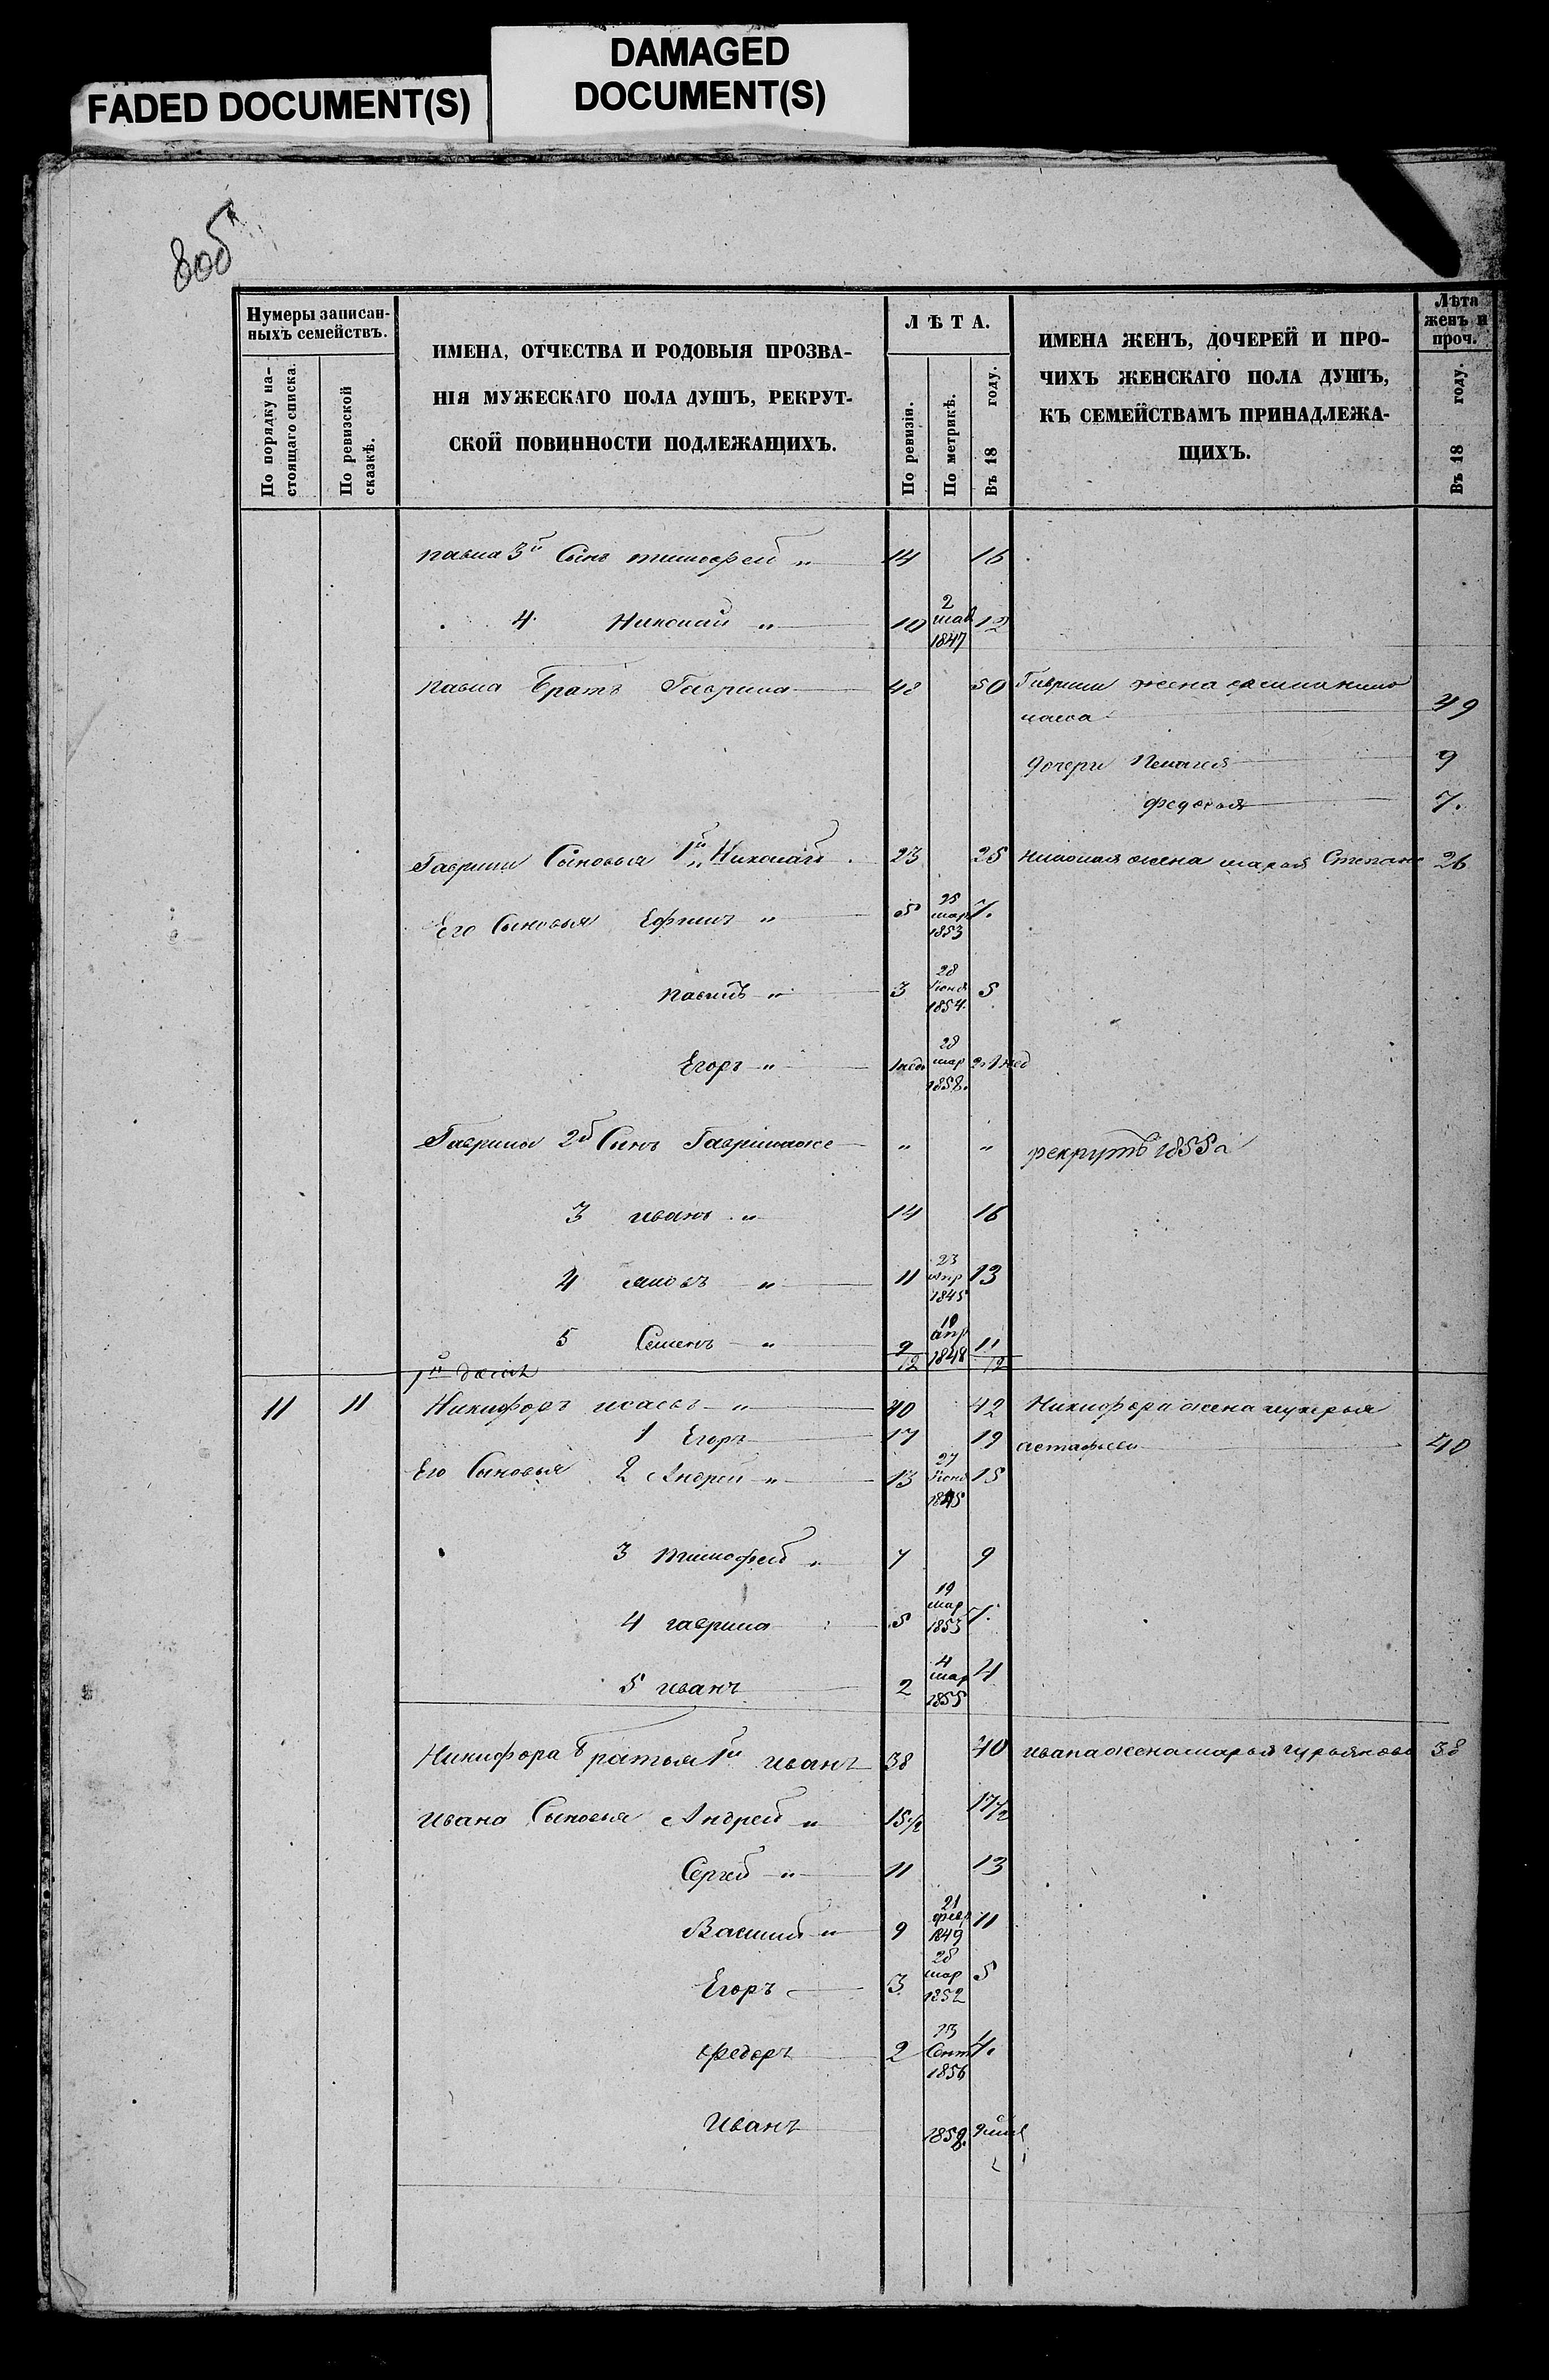 FADED DOCUMENT(S)
DAMAGED
DOCUMENT(S)
8об
Нумеры записан-
ныхъ семействъ.
По порядку на-
стоящаго списка.
По ревизской
сказкѣ.
ИМЕНА, ОТЧЕСТВА И РОДОВЫЯ ПРОЗВА-
НІЯ МУЖЕСКАГО ПОЛА ДУШЪ, РЕКРУТ-
СКОЙ ПОВИННОСТИ ПОДЛЕЖАЩИХЪ.
ЛѢТА.
По ревизіи.
По метрикѣ.
Въ 18 году.
ИМЕНА ЖЕНЪ, ДОЧЕРЕЙ И ПРО-
ЧИХЪ ЖЕНСКАГО ПОЛА ДУШЪ,
КЪ СЕМЕЙСТВАМЪ ПРИНАДЛЕЖА-
ЩИХЪ.
Лѣта
женъ и
проч.
Въ 18 году.
павла 3й Сынъ тимофей „ 14 16
4. Николай „ 10 2 мая 1847 12
павла Братъ Гаврила 48 50 Гаврилы жена
49
дочери Пелагея 9
федосья 7.
Гаврилы Сыновья 1й „ Николай 23 25 николая жена марья Степано 26
Его Сыновья Ефимъ „ 5 25 мар 1853 7.
павилъ „ 3 28 Июня 1854. 5
Егоръ „ 1нед. 28 мар 1858. 2. 1 нед
Гаврилы 2й Сынъ Гаврилаже „ „ рекрутъ 1855 г
3 иванъ „ 14 16
4 яковъ „ 11 23 апр 1845 13
5 Семенъ „ 9/12 10 апр 1848 11/12
1й
11 11 Никифоръ исаевъ „ 40 42 Никифора жена лукерья
1 Егоръ 17 19 астафьева 40
Его Сыновья 2 Андрей „ 13 27 Июня 1845 15
3 тимофей „ 7 9
4 гаврила 5 19 мар 1853 7.
5 иванъ 2 4 мар 1855 4
Никифора братья 1й иванъ 38 40 ивана жена марья гурьянова 38
ивана Сыновья Андрей „ 15 1/2 17 1/2
Сергей „ 11 13
Василий „ 9 21 февр 1849 11
Егоръ 3 28 мар 1852 5
федоръ 2 23 Сент 1856 4.
Иванъ 1858.